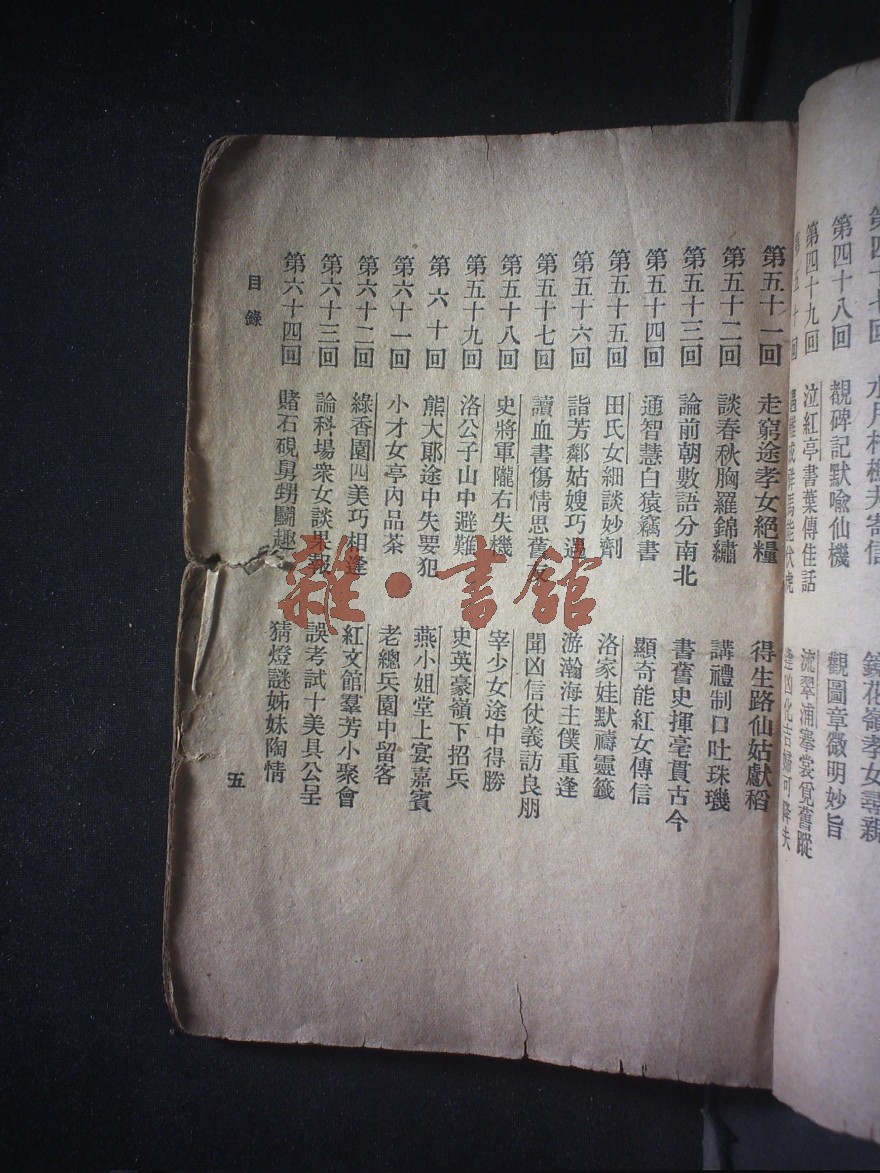 水月村樵夫寄信 鏡花嶺孝女尋親
第四十八回 覩碑記默喻仙機 觀圖章微明妙旨
第四十九回 泣紅亭書葉傳佳話 流翠浦搴裳覓舊蹤
第五十一回 走窮途孝女絕糧 得生路仙姑獻稻
第五十二回 談春秋胸羅錦繡 講禮制口吐珠璣
第五十三回 論前朝數語分南北 書舊史揮毫貫古今
第五十四回 通智慧白猿竊書 顯奇能紅女傳信
第五十五回 田氏女細談妙劑 洛家娃默禱靈籤
第五十六回 詣芳鄰姑嫂巧遇 游瀚海主僕重逢
第五十七回 讀血書傷情思舊友 聞凶信仗義訪良朋
第五十八回 史將軍隴右失機 宰少女途中得勝
第五十九回 洛公子山中避難 史英豪嶺下招兵
第六十回 熊大郎途中失要犯 燕小姐堂上宴嘉賓
第六十一回 小才女亭內品茶 老總兵園中留客
第六十二回 綠香園四美巧相逢 紅文館羣芳小聚會
第六十三回 論科場衆女談果報 誤考試十美具公呈
第六十四回 賭石硯舅甥鬭趣 猜燈謎姊妹陶情
目錄
五
雜·書館